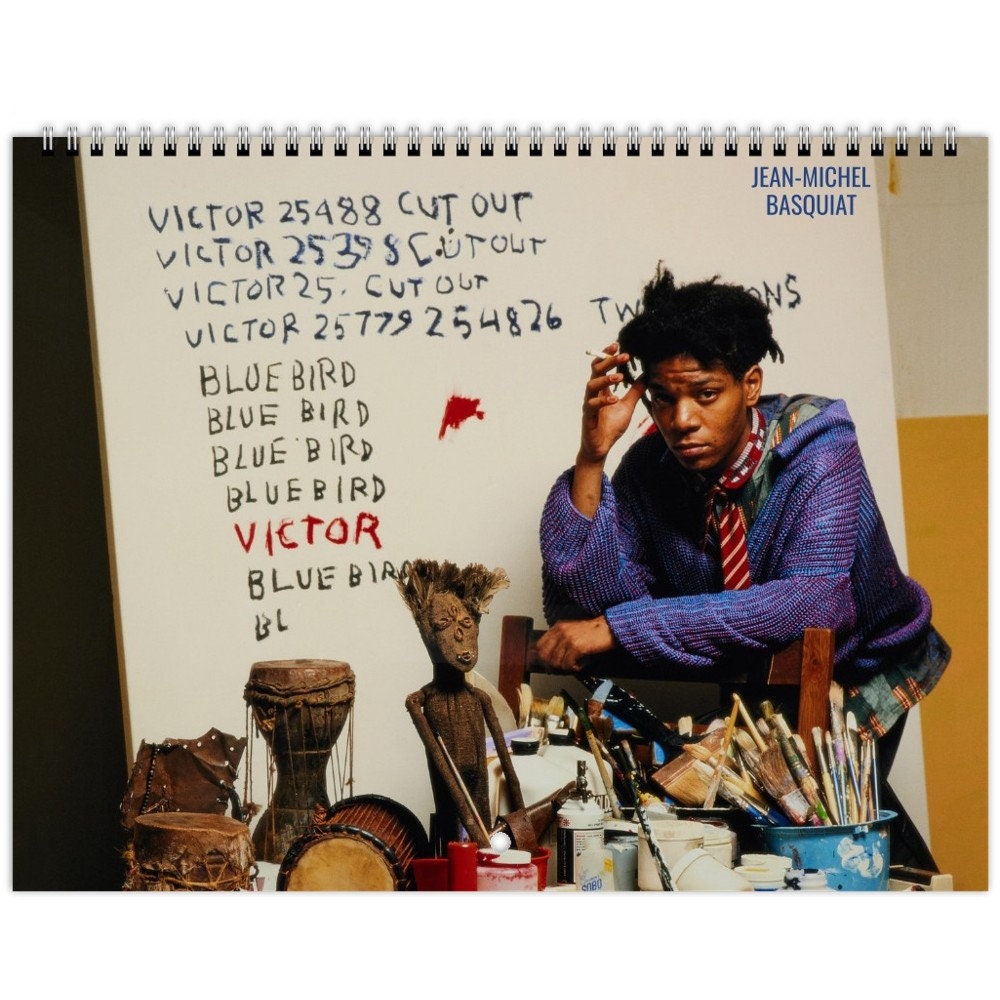 JEAN-MICHEL
BASQUIAT
VICTOR 25488 CUT OUT
VICTOR 25398 CUTOUT
VICTOR 25. CUT OUT
VICTOR 25779 254826
BLUE BIRD
BLUE BIRD
BLUE BIRD
BLUEBIRD
VICTOR
BLUE BIR
BL